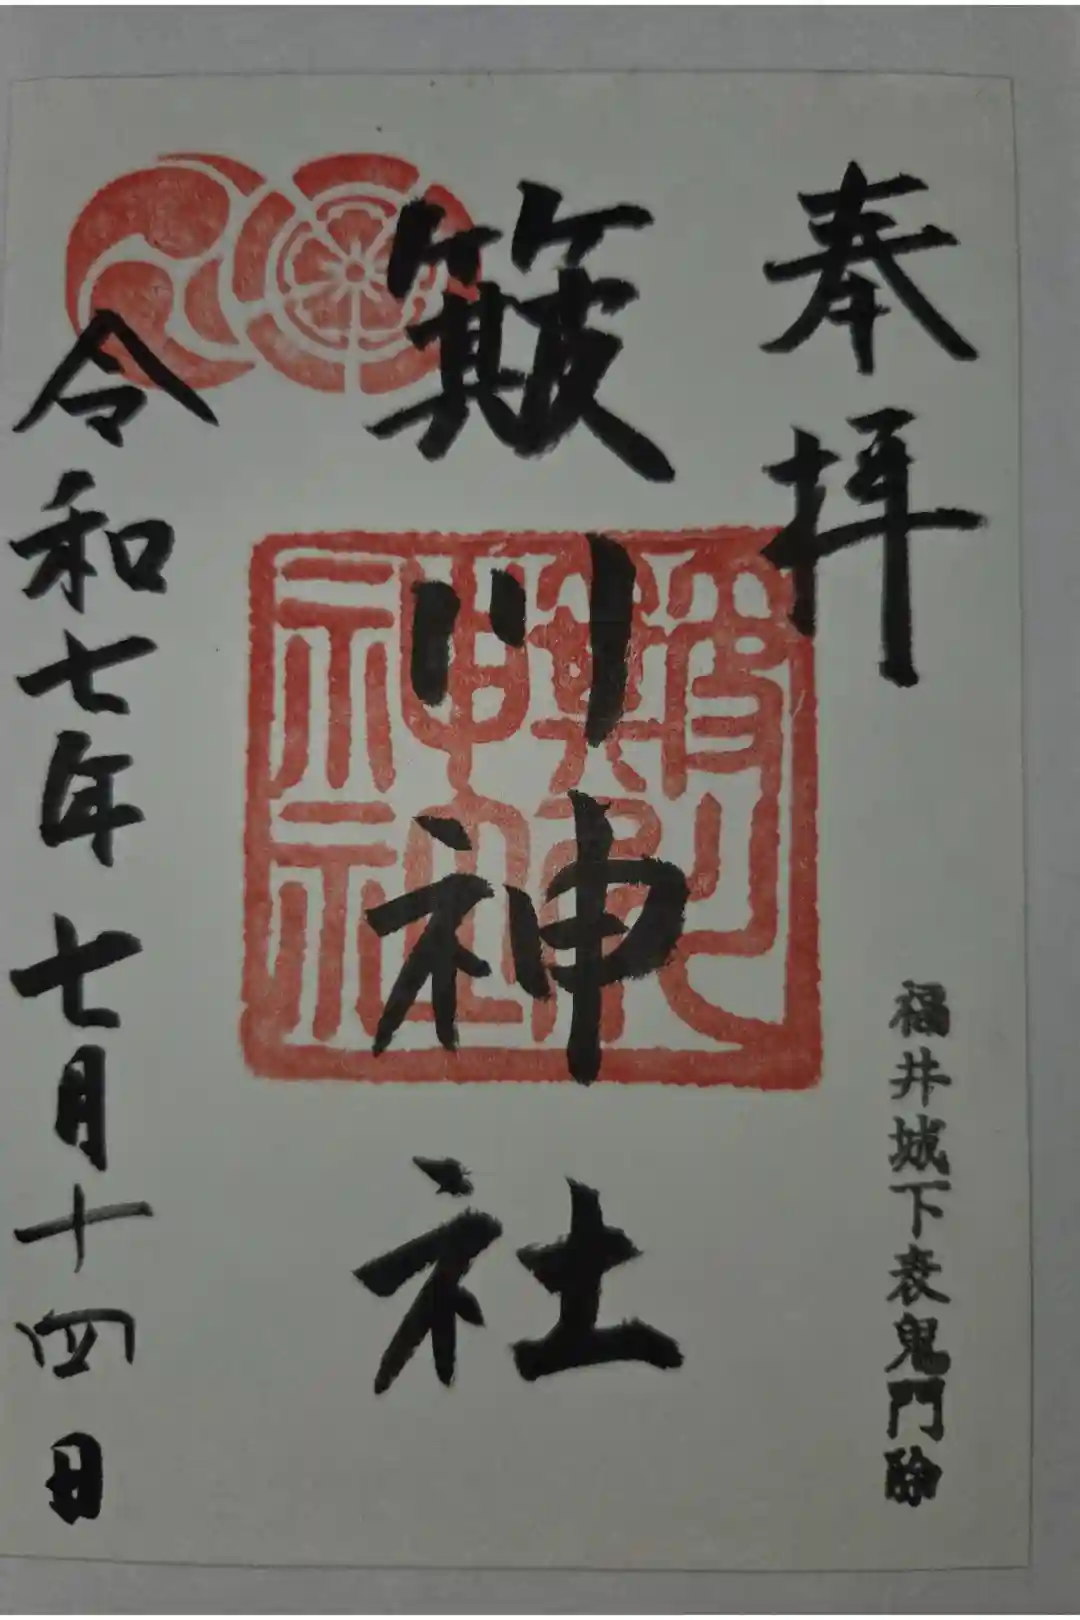 奉拝
福井城下表鬼門除
簸川神社
令和七年七月十四日